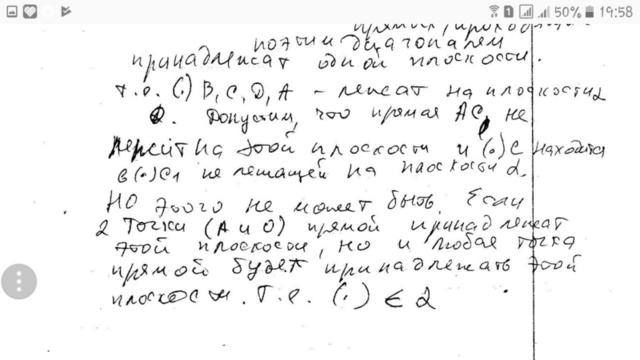 50% 19:58
прямых, проход
по этим диагоналям
принадлежат одной плоскости.
т.е. (·) B, C, D, A - лежат на плоскости α
2. Допустим, что прямая AC, не
лежит на этой плоскости и (·) C находится
в (·) C1 не лежащей на плоскости α.
НО этого не может быть. Если
2 точки (A и O) прямой принадлежат
этой плоскости, но и любая точка
прямой будет принадлежать этой
плоскости. Т.е. (·) ∈ α